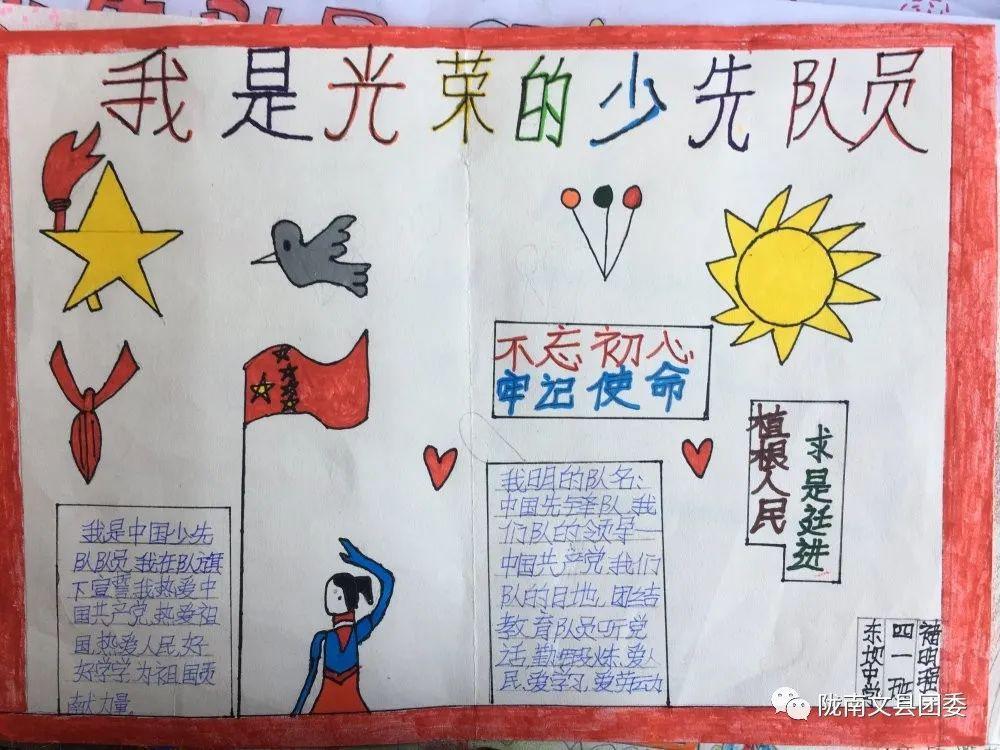 我是光荣的少先队员
不忘初心
牢记使命
植根人民
求是廷进
我是中国少先
队队员,我在队旗
下宣誓我热爱中
国共产党,热爱祖
国,热爱人民,好
好学学,为祖国贡
献力量,
我明的队名:
中国先锋队,我
们队的领导
中国共产党,我们
队的目地,团结
教育队员听党
话,勤锻炼,爱人
民,爱学习,爱劳动
东坝中学
四一班
陇南文县团委